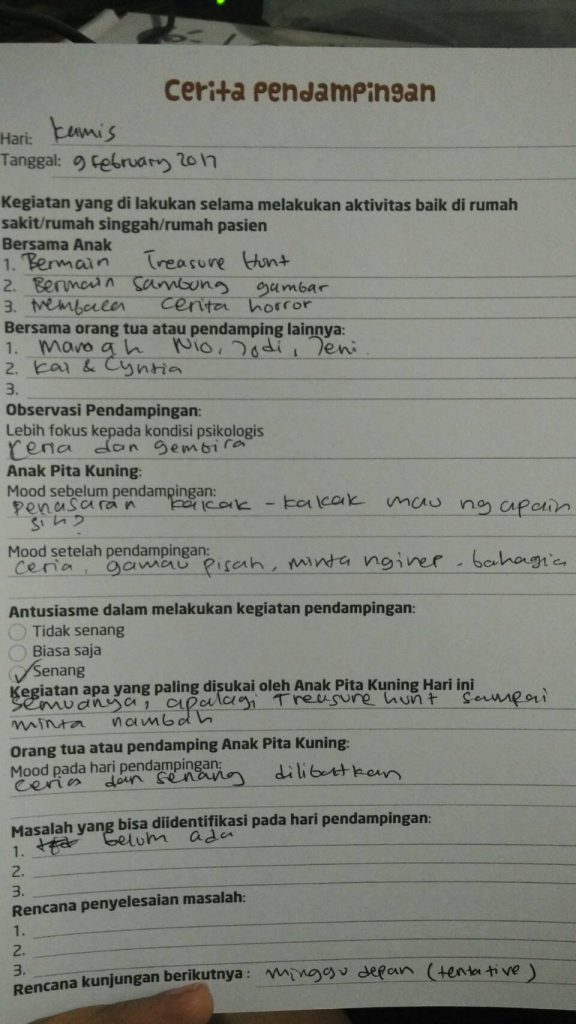 Cerita Pendampingan
Hari: Kamis
Tanggal: 9 February 2017
Kegiatan yang di lakukan selama melakukan aktivitas baik di rumah
sakit/rumah singgah/rumah pasien
Bersama Anak
1. Bermain Treasure Hunt
2. Bermain Sambung gambar
3. Membaca cerita horror
Bersama orang tua atau pendamping lainnya:
1. Nio, Jodi, Jeni.
2. Kai & Cyntia
3.
Observasi Pendampingan:
Lebih fokus kepada kondisi psikologis
Ceria dan gembira
Anak Pita Kuning:
Mood sebelum pendampingan:
penasaran kakak-kakak mau ngapain
sih?
Mood setelah pendampingan:
ceria, gamau pisah, minta nginep. bahagia
Antusiasme dalam melakukan kegiatan pendampingan:
Tidak senang
Biasa saja
Senang
Kegiatan apa yang paling disukai oleh Anak Pita Kuning Hari ini
Semuanya, apalagi Treasure hunt sampai
minta nambah
Orang tua atau pendamping Anak Pita Kuning:
Mood pada hari pendampingan:
ceria dan senang dilibatkan
Masalah yang bisa diidentifikasi pada hari pendampingan:
1. belum ada
2.
3.
Rencana penyelesaian masalah:
1.
2.
3.
Rencana kunjungan berikutnya : minggu depan (tentative)